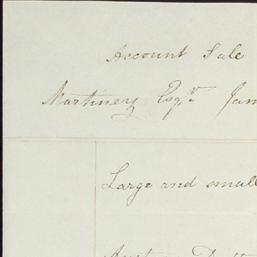 Account Sale
Martiney Esqr. Jam
Large and small